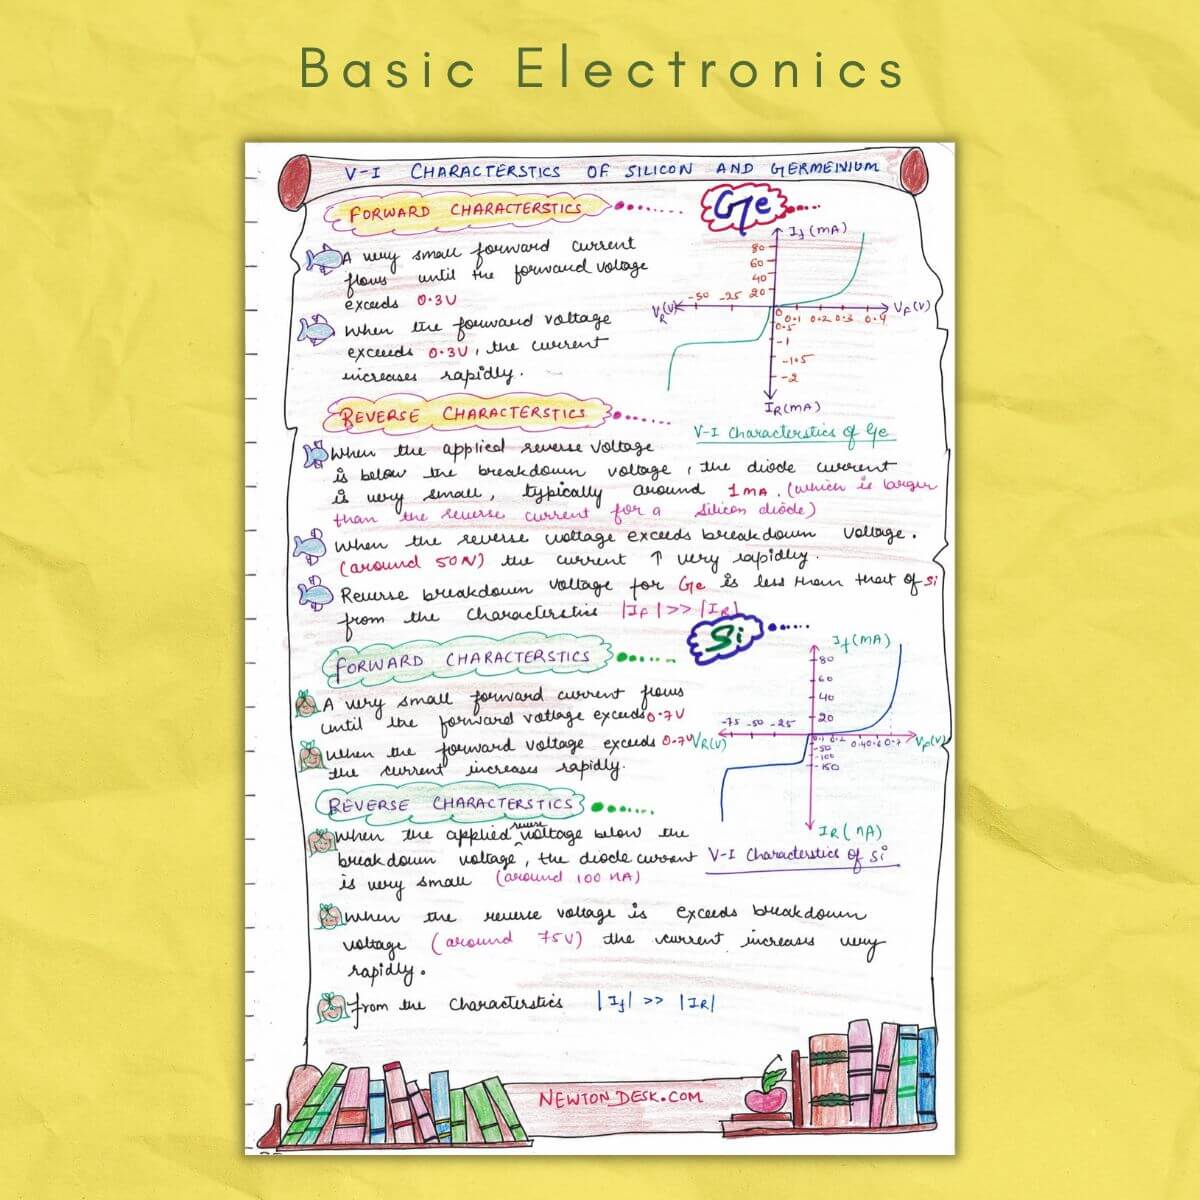 Basic Electronics
V-I CHARACTERSTICS OF SILICON AND GERMENIUM
FORWARD CHARACTERSTICS
Ge
A very small forward current
flows until the forward voltage
exceeds 0.3V
When the forward voltage
exceeds 0.3V, the current
increases rapidly.
If (mA)
80
60
40
20
VR(V)
-50 -25
0 0.1 0.2 0.3 0.4
VF (V)
0.5
-1
-1.5
-2
IR(mA)
V-I Characterstics of Ge
REVERSE CHARACTERSTICS
When the applied reverse voltage
is below the breakdown voltage, the diode current
is very small, typically around 1mA. (which is larger
than the reverse current for a silicon diode)
When the reverse voltage exceeds breakdown voltage.
(around 50V) the current ↑ very rapidly.
Reverse breakdown voltage for Ge is less than that of Si
from the Characterstics |IF| >> |IR|
Si
FORWARD CHARACTERSTICS
A very small forward current flows
until the forward voltage exceeds 0.7V
When the forward voltage exceeds 0.7V
the current increases rapidly.
If (mA)
80
60
40
20
-75 -50 -25
VR(V)
0.1 0.2 0.4 0.6 0.7
VF(V)
-50
-100
-150
IR (nA)
V-I Characterstics of Si
REVERSE CHARACTERSTICS
When the applied reverse voltage below the
breakdown voltage, the diode current
is very small (around 100 nA)
When the reverse voltage is exceeds breakdown
voltage (around 75V) the current increases very
rapidly.
from the Characterstics |If| >> |IR|
NEWTON DESK.COM